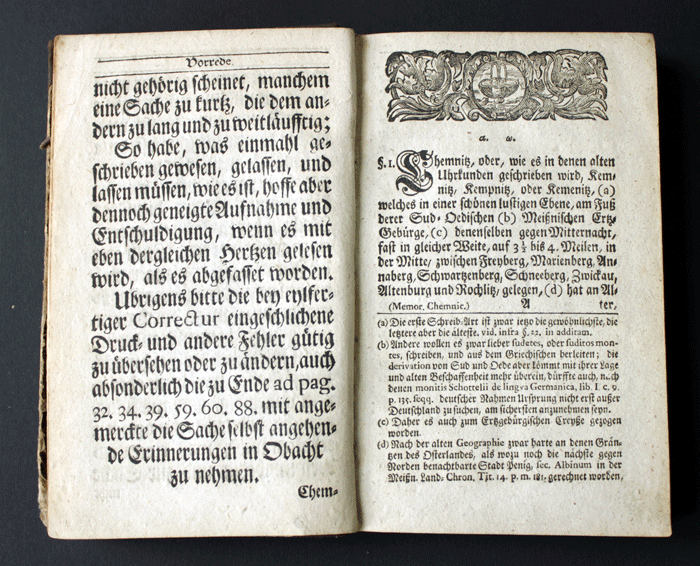 Vorrede.
nicht gehörig scheinet, manchem
eine Sache zu kurtz, die dem an-
dern zu lang und zu weitläufftig;
So habe, was einmahl ge-
schrieben gewesen, gelassen, und
lassen müssen, wie es ist, hoffe aber
dennoch geneigte Aufnahme und
Entschuldigung, wenn es mit
eben dergleichen Hertzen gelesen
wird, als es abgefasset worden.
Ubrigens bitte die bey eylfer-
tiger Correctur eingeschlichene
Druck- und andere Fehler gütig
zu übersehen oder zu ändern, auch
absonderlich die zu Ende ad pag.
32. 34. 39. 59. 60. 88. mit ange-
merckte die Sache selbst angehen-
de Erinnerungen in Obacht
zu nehmen.
Chem-
a. w.
§. 1. Chemnitz, oder, wie es in denen alten
Uhrkunden geschrieben wird, Kem-
nitz, Kempnitz, oder Kemenitz, (a)
welches in einer schönen lustigen Ebene, am Fuß
derer Sud-Oedischen (b) Meißnischen Ertz-
Gebürge, (c) denenselben gegen Mitternacht,
fast in gleicher Weite, auf 3 1/2 bis 4. Meilen, in
der Mitte, zwischen Freyberg, Marienberg, An-
naberg, Schwartzenberg, Schneeberg, Zwickau,
Altenburg und Rochlitz, gelegen, (d) hat an Al-
(Memor. Chemnic.) A ter,
(a) Die erste Schreib-Art ist zwar ietzo die gewöhnlichste, die
letztere aber die älteste. vid. infra §. 12. in additam.
(b) Andere wollen es zwar lieber sudetes, oder suditos mon-
tes, schreiben, und aus dem Griechischen herleiten; die
derivation von Sud und Oede aber kömmt mit ihrer Lage
und alten Beschaffenheit mehr überein, dürffte auch, nach
denen monitis Schottelii de lingva Germanica, lib. I. c. 9.
p. 135. seqq. deutscher Nahmen Ursprung nicht erst außer
Deutschland zu suchen, am sichersten anzunehmen seyn.
(c) Daher es auch zum Ertzgebürgischen Creyße gezogen
worden.
(d) Nach der alten Geographie zwar harte an denen Grän-
tzen des Osterlandes, als wozu noch die nächste gegen
Norden benachbarte Stadt Penig, sec. Albinum in der
Meißn. Land-Chron. Tit. 14. p. m. 181. gerechnet worden,